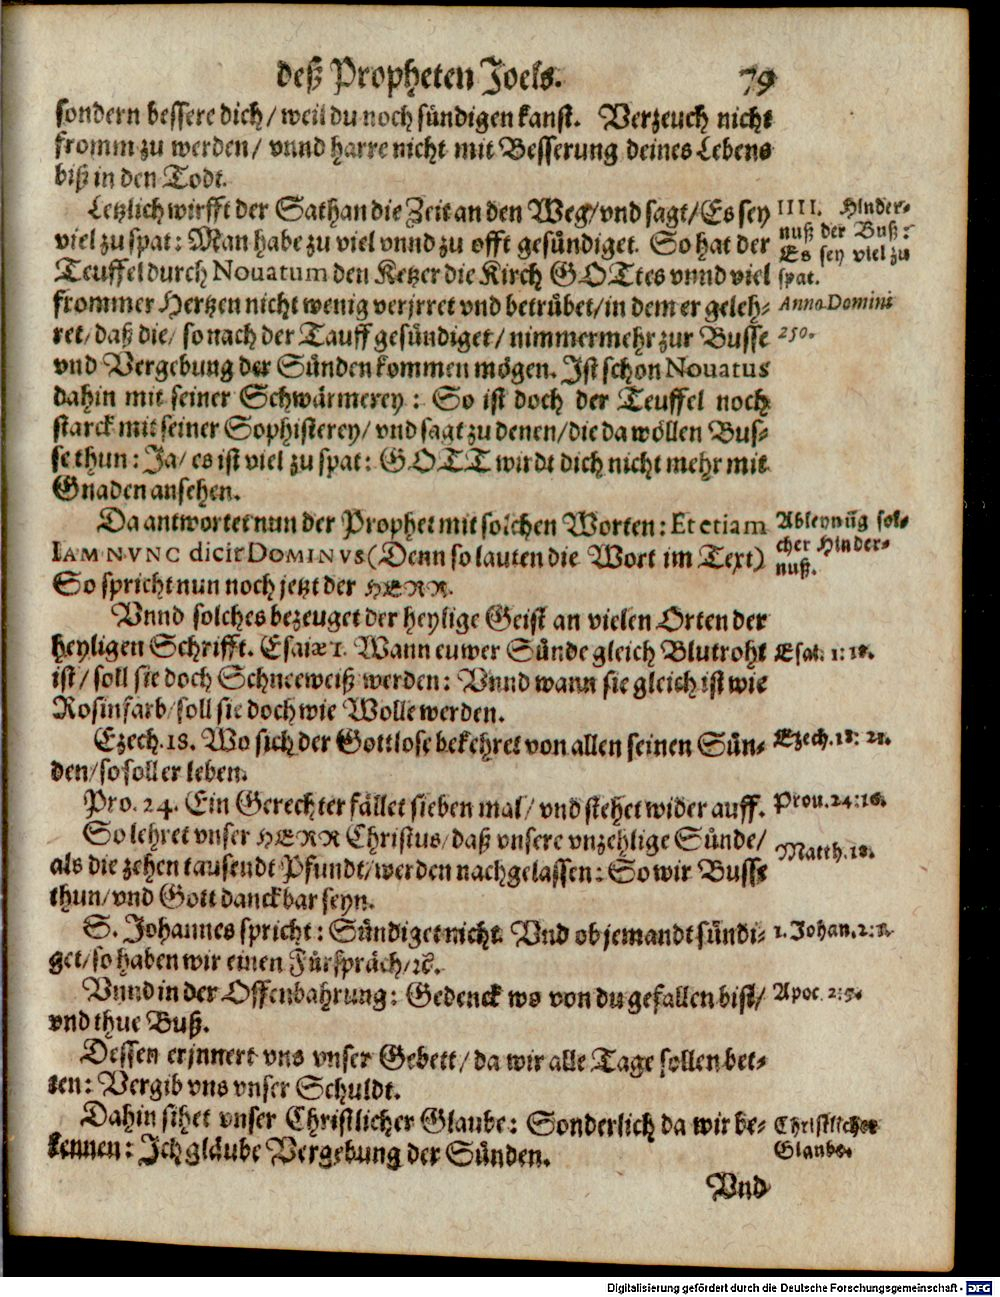 deß Propheten Joels. 79
sondern bessere dich/ weil du noch sündigen kanst. Verzeuch nicht
fromm zu werden/ vnnd harre nicht mit Besserung deines Lebens
biß in den Todt.
Letzlich wirfft der Sathan die Zeit an den Weg/ vnd sagt/ Es sey
viel zu spat: Man habe zu viel vnnd zu offt gesündiget. So hat der
Teuffel durch Novatum den Ketzer die Kirch GOTtes vnnd viel
frommer Hertzen nicht wenig verjrret vnd betrübet/ in dem er geleh-
ret/ daß die/ so nach der Tauff gesündiget/ nimmermehr zur Busse
vnd Vergebung der Sünden kommen mögen. Ist schon Novatus
dahin mit seiner Schwärmerey: So ist doch der Teuffel noch
starck mit seiner Sophisterey/ vnd sagt zu denen/ die da wöllen Bus-
se thun: Ja/ es ist viel zu spat: GOTT wirdt dich nicht mehr mit
Gnaden ansehen.
IIII. Hinder-
nuß der Buß:
Es sey viel zu
spat.
Anno Domini
250.
Da antwortet nun der Prophet mit solchen Worten: Et etiam
IAM NVNC dicit DOMINVS (Denn so lauten die Wort im Text)
So spricht nun noch jetzt der HERR.
Ableynũg sol-
cher Hinder-
nuß.
Vnnd solches bezeuget der heylige Geist an vielen Orten der
heyligen Schrifft. Esaiæ 1. Wann euwer Sünde gleich Blutroht
ist/ soll sie doch Schneeweiß werden: Vnnd wann sie gleich ist wie
Rosinfarb/ soll sie doch wie Wolle werden.
Esai. 1: 18.
Ezech. 18. Wo sich der Gottlose bekehret von allen seinen Sün-
den/ so soll er leben.
Ezech. 18: 21.
Pro. 24. Ein Gerechter fället sieben mal/ vnd stehet wider auff.
Prou. 24: 16.
So lehret vnser HERR Christus/ daß vnsere vnzehlige Sünde/
als die zehen tausendt Pfundt/ werden nachgelassen: So wir Busse
thun/ vnd Gott danckbar seyn.
Matth. 18.
S. Johannes spricht: Sündiget nicht. Vnd ob jemandt sündi-
get/ so haben wir einen Fürspräch/ ꝛc.
1. Johan. 2: 1.
Vnnd in der Offenbahrung: Gedenck wo von du gefallen bist/
vnd thue Buß.
Apoc. 2: 5.
Dessen erjnnert vns vnser Gebett/ da wir alle Tage sollen bet-
ten: Vergib vns vnser Schuldt.
Dahin sihet vnser Christlicher Glaube: Sonderlich da wir be-
kennen: Ich gläube Vergebung der Sünden.
Christlicher
Glaube.
Vnd
Digitalisierung gefördert durch die Deutsche Forschungsgemeinschaft - DFG